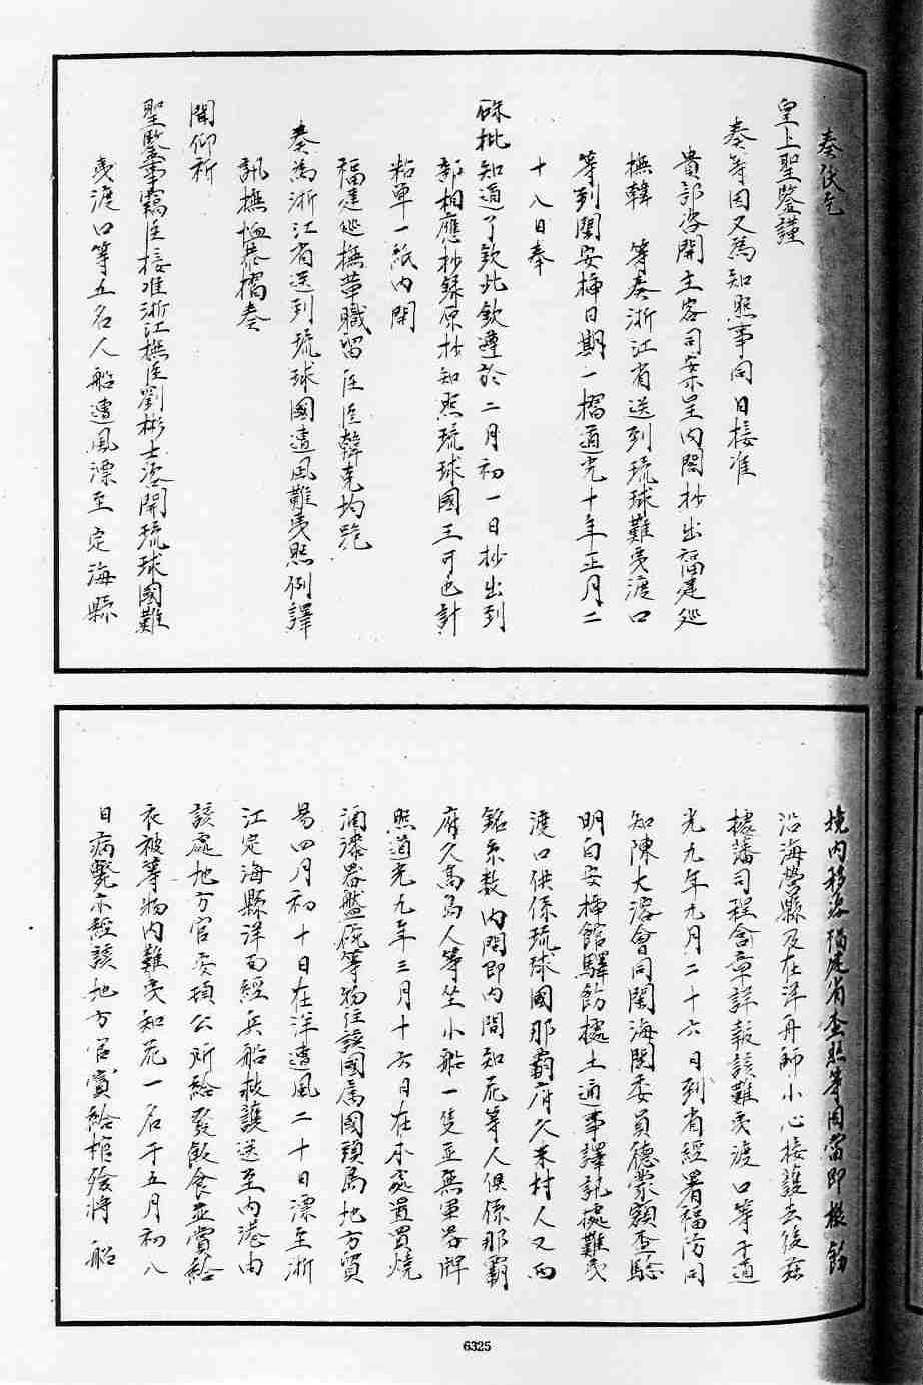 奏伏乞
皇上聖鑒謹
奏等因又為知照事同日接准
貴部咨開主客司案呈内閣抄出福建廵
撫韓　等奏浙江省送到琉球難夷渡口
等到閩安揷日期一摺道光十年正月二
十八日奉
硃批知道了欽此欽遵於二月初一日抄出到
部相應抄録原抄知照琉球國王可也計
粘單一紙内開
福建廵撫革職留任臣韓克均跪
奏為浙江省送到琉球國遭風難夷照例譯
訊撫恤恭摺奏
聞仰祈
聖鑒事竊臣接准浙江撫臣劉彬士咨開琉球國難
夷渡口等五名人船遭風漂至定海縣
境内移咨福建省查照等因當即檄飭
沿海營縣及在洋舟師小心接護去後茲
據藩司程含章詳報該難夷渡口等于道
光九年九月二十六日到省經署福防同
知陳大溶會同閩海關委員德蒙額查驗
明白安揷館驛飭據土通事譯訊據難夷
渡口供係琉球國那霸府久米村人又西
銘系数内間即内間知花等人俱係那霸
府久高島人等坐小船一隻並無軍器牌
照道光九年三月十六日在本處置買燒
酒漆器盤碗等物往該國屬國頭島地方貿
易四月初十日在洋遭風二十日漂至浙
江定海縣洋面經兵船救護送至内港由
該處地方官安頓公所給發飲食並賞給
衣被等物内難夷知花一名于五月初八
日病斃亦經該地方官賞給棺殮將　船
6325